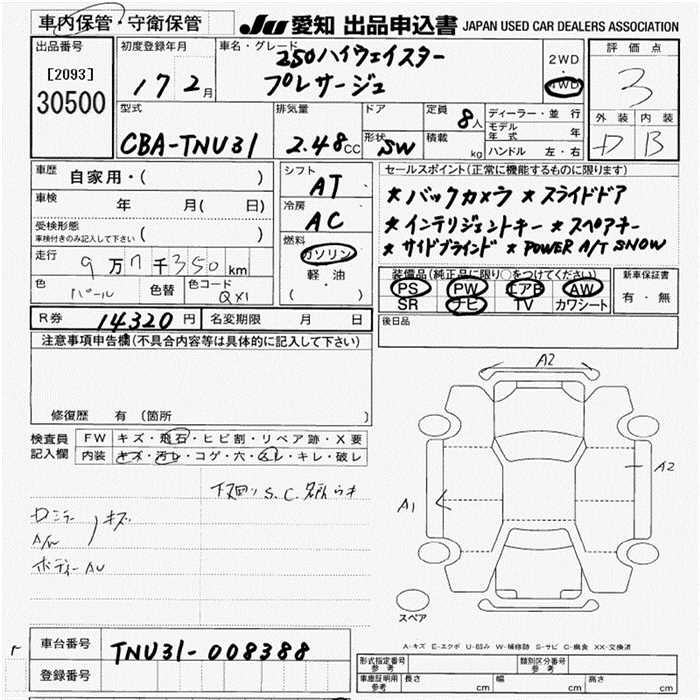 車内保管・守衛保管
JU 愛知 出品申込書 JAPAN USED CAR DEALERS ASSOCIATION
出品番号
[2093]
30500
初度登録年月
17 2月
車名・グレード
250ハイウェイスター
プレサージュ
2WD
・
4WD
評価点
3
外装 内装
D B
型式
CBA-TNU31
排気量
2.48CC
ドア
形状 SW
定員 8人
積載 kg
ディーラー・並行
モデル年式 年
ハンドル 左・右
車歴 自家用・( )
車検 年 月( 日)
受検形態
車検付きのみ記入して下さい ( )
走行 9万7千350km
色 パール 色替 色コード QX1
シフト AT
冷房 AC
燃料
ガソリン
軽油
( )
セールスポイント(正常に機能するものに限ります)
★バックカメラ ★スライドドア
★インテリジェントキー ★スペアキー
★サイドブラインド ★POWER A/T SNOW
装備品(純正品に限り○をつけてください)
PS PW エアB AW
SR ナビ TV カワシート
新車保証書
有・無
R券 14320円 名変期限 月 日
後日品
注意事項申告欄(不具合内容等は具体的に記入して下さい)
修復歴 有(箇所 )
検査員記入欄
FW キズ・飛石・ヒビ割・リペア跡・X要
内装 キズ・汚レ・コゲ・穴・スレ・キレ・破レ
下廻り S.C.
Dミラー キズ
A/W
ボディーAU
A2
A2
A1
スペア
A-キズ E-エクボ U-凹み W-補修跡 S-サビ C-腐食 XX-交換済
車台番号 TNU31-008388
登録番号
形式指定番号 参考
類別区分番号 参考
車庫証明用 参考 長さ cm 幅 cm 高さ cm